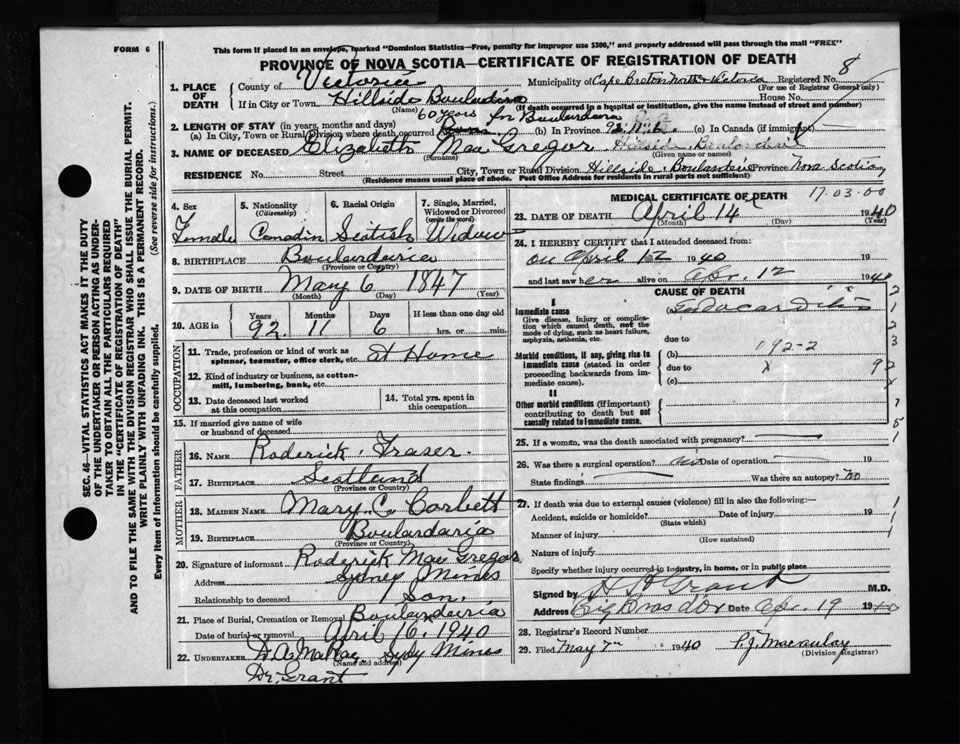 FORM 6
This form if placed in an envelope, marked "Dominion Statistics—Free, penalty for improper use $300," and properly addressed will pass through the mail "FREE"
PROVINCE OF NOVA SCOTIA—CERTIFICATE OF REGISTRATION OF DEATH
1. PLACE OF DEATH
County of Victoria Municipality of Cape Breton North & Victoria Registered No. 8
(For use of Registrar General only)
If in City or Town Hillside Boulardaria House No.
(Name) (If death occurred in a hospital or institution, give the name instead of street and number)
60 years for Boulardaria
2. LENGTH OF STAY (in years, months and days)
(a) In City, Town or Rural Division where death occurred (b) In Province 92.11.6. (c) In Canada (if immigrant)
3. NAME OF DECEASED Elizabeth Mac Gregor Hillside Boulardarie
(Surname) (Given name or names)
RESIDENCE No. Street City, Town or Rural Division Hillside, Boulardarie Province Nova Scotia
(Residence means usual place of abode. Post Office Address for residents in rural parts not sufficient)
4. Sex Female
5. Nationality (Citizenship) Canadin
6. Racial Origin Scotish
7. Single, Married, Widowed or Divorced (write the word) Widow
8. BIRTHPLACE Boulardaria
(Province or Country)
9. DATE OF BIRTH May 6 1847
(Month) (Day) (Year)
10. AGE in Years 92 Months 11 Days 6 If less than one day old
hrs. or min.
OCCUPATION
11. Trade, profession or kind of work as spinner, teamster, office clerk, etc. At Home
12. Kind of industry or business, as cotton-mill, lumbering, bank, etc.
13. Date deceased last worked at this occupation
14. Total yrs. spent in this occupation
15. If married give name of wife or husband of deceased
FATHER
16. NAME Roderick Fraser.
17. BIRTHPLACE Scotland
(Province or Country)
MOTHER
18. MAIDEN NAME Mary C. Corbett
19. BIRTHPLACE Boulardaria
(Province or Country)
20. Signature of informant Roderick Mac Gregor
Address Sydney Mines
Relationship to deceased Son.
21. Place of Burial, Cremation or Removal Boulardaria
Date of burial or removal April 16, 1940
22. UNDERTAKER D. A. McRae Sydy Mines
(Name and address)
Dr. Grant
MEDICAL CERTIFICATE OF DEATH
17.03.00
23. DATE OF DEATH April 14 1940
(Month) (Day) (Year)
24. I HEREBY CERTIFY that I attended deceased from:
on April 12 1940 19
and last saw her alive on Apr. 12 1940
CAUSE OF DEATH
I
Immediate cause
Give disease, injury or complication which caused death, not the mode of dying, such as heart failure, asphyxia, asthenia, etc.
(a) Endocarditis
due to
Morbid conditions, if any, giving rise to immediate cause (stated in order proceeding backwards from immediate cause).
(b) 092-2
due to x 92
(c)
II
Other morbid conditions (if important) contributing to death but not causally related to immediate cause.
25. If a woman, was the death associated with pregnancy?
26. Was there a surgical operation? no Date of operation 19
State findings Was there an autopsy? No
27. If death was due to external causes (violence) fill in also the following:—
Accident, suicide or homicide? Date of injury 19
(State which)
Manner of injury
(How sustained)
Nature of injury
Specify whether injury occurred in industry, in home, or in public place
Signed by H H Grant M.D.
Address Big Bras d'Or Date Apr. 19 1940
28. Registrar's Record Number
29. Filed May 7 1940 P.J. Macaulay
(Division Registrar)
SEC. 46—VITAL STATISTICS ACT MAKES IT THE DUTY
OF THE UNDERTAKER OR PERSON ACTING AS UNDER-
TAKER TO OBTAIN ALL THE PARTICULARS REQUIRED
IN THE "CERTIFICATE OF REGISTRATION OF DEATH"
AND TO FILE THE SAME WITH THE DIVISION REGISTRAR WHO SHALL ISSUE THE BURIAL PERMIT.
WRITE PLAINLY WITH UNFADING INK. THIS IS A PERMANENT RECORD.
Every item of information should be carefully supplied. (See reverse side for instructions.)